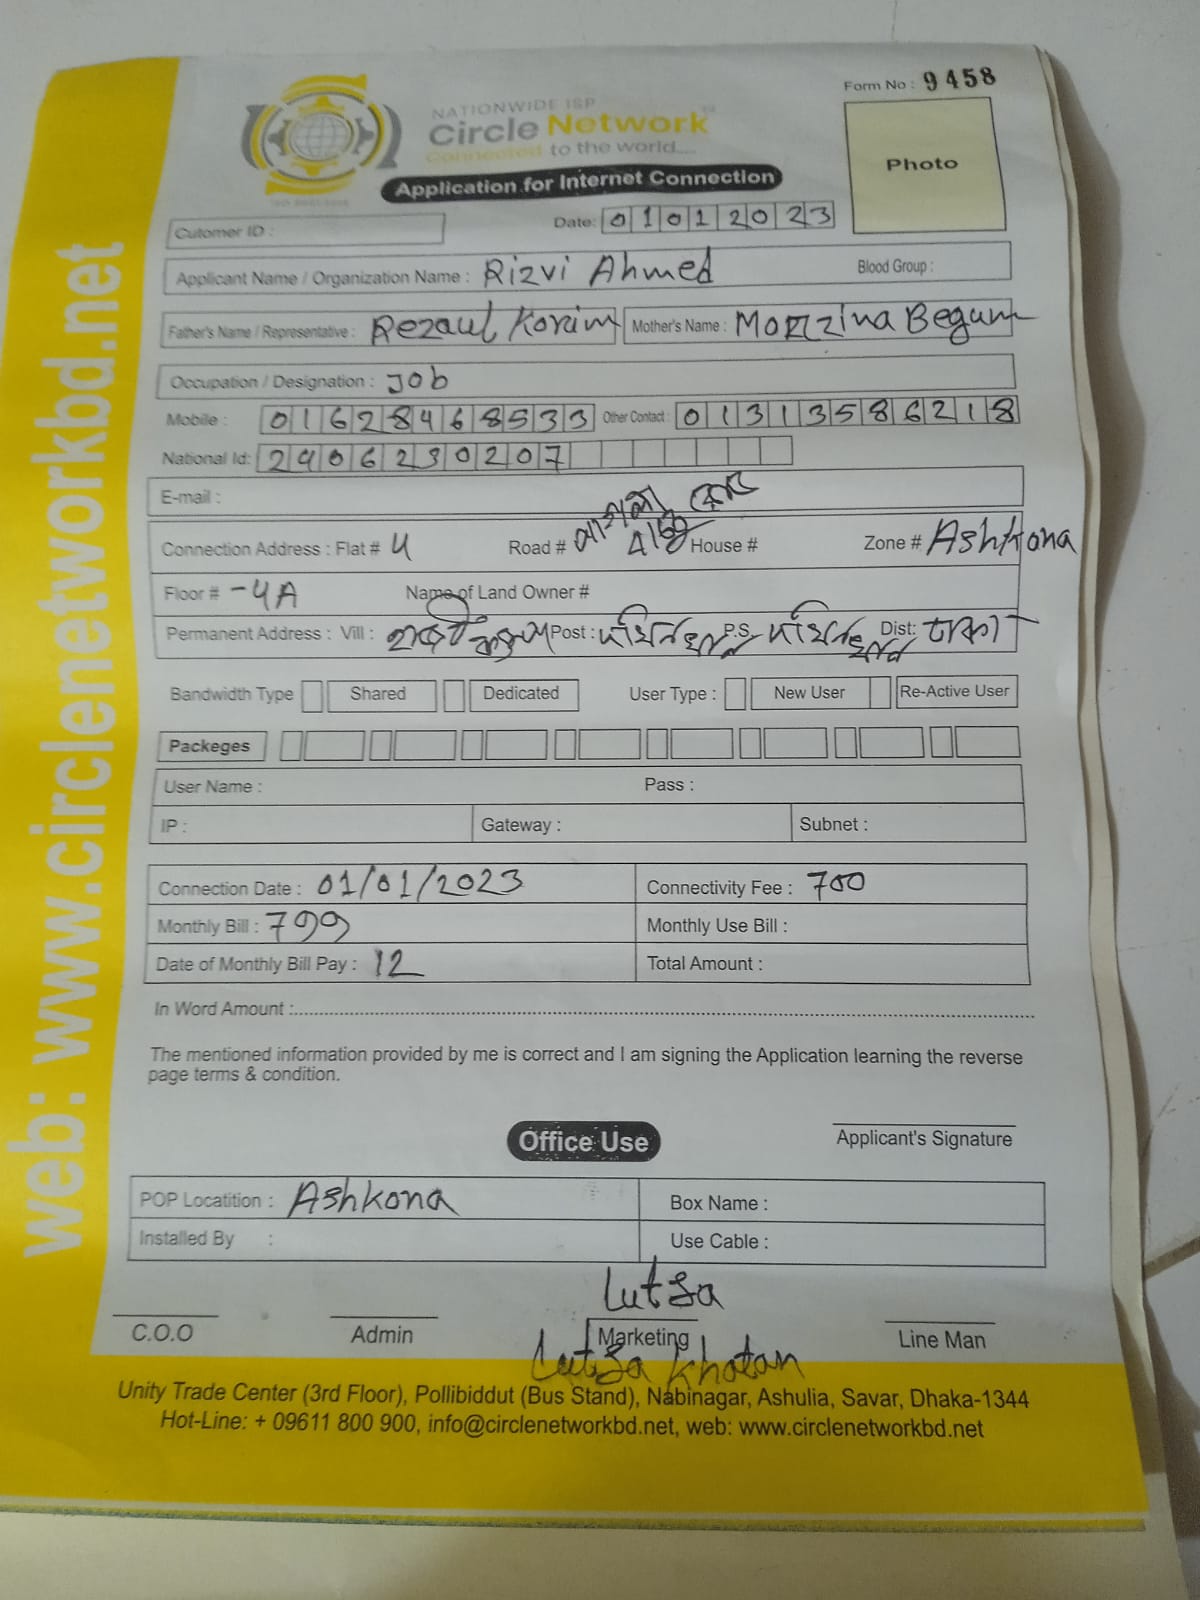 Form No : 9458
NATIONWIDE ISP
Circle Network™
Connected to the world....
Photo
Application for Internet Connection
Cutomer ID : Date: 01012023
Applicant Name / Organization Name : Rizvi Ahmed Blood Group :
Father's Name / Representative : Rezaul Korim Mother's Name : Morzina Begum
Occupation / Designation : Job
Mobile : 01628468533 Other Contact : 01313586218
National Id: 2406230207
E-mail :
Connection Address : Flat # 4 Road # House # Zone # Ashkona
Floor # -4A Name of Land Owner #
Permanent Address : Vill : Post : P.S Dist: ঢাকা
Bandwidth Type Shared Dedicated User Type : New User Re-Active User
Packeges
User Name : Pass :
IP : Gateway : Subnet :
Connection Date : 01/01/2023 Connectivity Fee : 700
Monthly Bill : 799 Monthly Use Bill :
Date of Monthly Bill Pay : 12 Total Amount :
In Word Amount :
The mentioned information provided by me is correct and I am signing the Application learning the reverse
page terms & condition.
Applicant's Signature
Office Use
POP Locatition : Ashkona Box Name :
Installed By : Use Cable :
Lutfa
C.O.O Admin Marketing Line Man
Lutfa Khatan
Unity Trade Center (3rd Floor), Pollibiddut (Bus Stand), Nabinagar, Ashulia, Savar, Dhaka-1344
Hot-Line: + 09611 800 900, info@circlenetworkbd.net, web: www.circlenetworkbd.net
web: www.circlenetworkbd.net